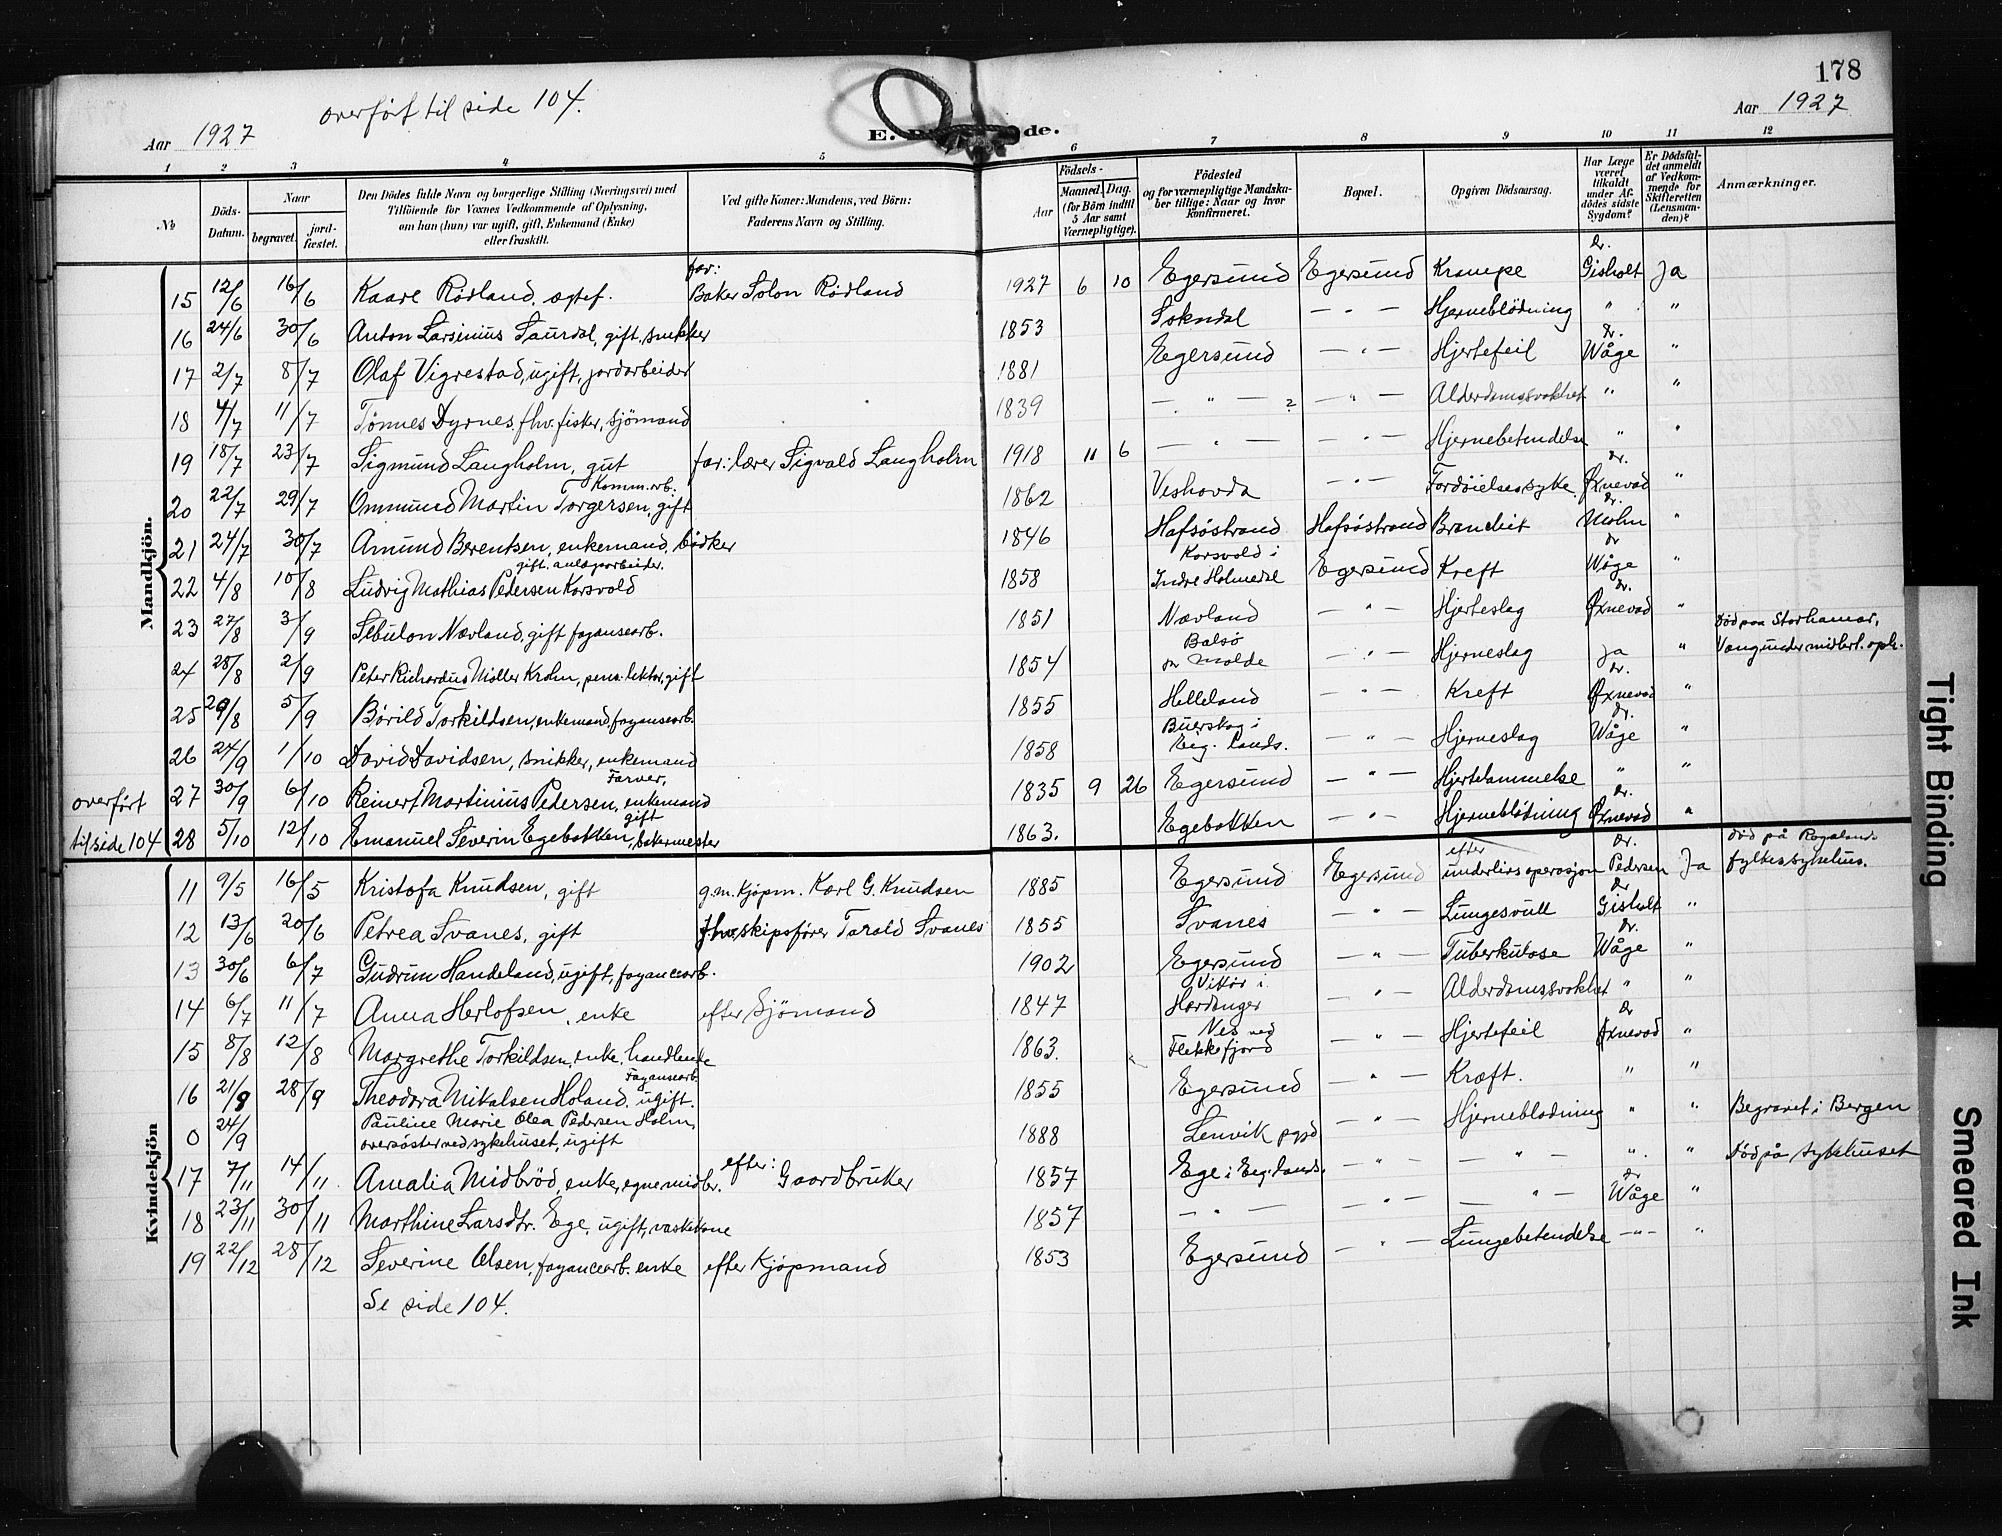 178
Aar 1927
overført til side 104.
Aar 1927
E. de.
1 2 3 4 5 6 7 8 9 10 11 12
№
Döds-Datum.
Naar
begravet.
jord-fæstet.
Den Dödes fulde Navn og borgerlige Stilling (Næringsvei) med
Tilföiende for Voxnes Vedkommende af Oplysning,
om han (hun) var ugift, gift, Enkemand (Enke)
eller fraskilt.
Ved gifte Koner: Mandens, ved Börn:
Faderens Navn og Stilling.
Födsels-
Aar
Maaned. Dag.
(for Börn indtil
5 Aar samt
Værnepligtige).
Födested
og for værnepligtige Mandska-
ber tillige: Naar og hvor
konfirmeret.
Bopæl.
Opgiven Dödsaarsag.
Har Læge
været
tilkaldt
under Af-
dödes sidste
Sygdom?
Er Dödsfal-
det anmeldt
af Vedkom-
mende for
Skifteretten
(Lensman-
den)?
Anmærkninger.
Mandkjön.
15 12/6 16/6 Kaare Rødland, ægtef. far: Baker Solon Rødland 1927 6 10 Egersund Egersund Krampe Dr. Gisholt Ja
16 24/6 30/6 Anton Larsinius Saurdal, gift, snekker 1853 Sokndal — " — Hjerneblödning " "
17 2/7 8/7 Olaf Vigrestad, ugift, jordarbeider 1881 Egersund — " — Hjertefeil Dr. Wåge "
18 4/7 11/7 Tønnes Dyrnes, fhv. fisker, sjömand 1839 — " — ? — " — Alderdomssvakhet " "
19 18/7 23/7 Sigmund Langholm, gut far: lærer Sigvald Langholm 1918 11 6 — " — — " — Hjernebetendelse " "
20 22/7 29/7 Ommund Martin Torgersen, gift Komm.arb. 1862 Veshovda — " — Fordöielsessyke. Dr. Øxnevad "
21 24/7 30/7 Amund Berentsen, enkemand, bödker 1846 Hafsöstrand Hafsöstrand Brandeit Dr. Mohn "
22 4/8 10/8 Ludvig Mathias Pedersen Korsvold gift, anlægsarbeider. 1858 Korsvold i Indre Holmedal Egersund Kreft Dr Wåge "
23 27/8 3/9 Sebulon Nævland, gift fajansearb. 1851 Nævland — " — Hjerteslag Dr. Øxnevad "
24 28/8 2/9 Peter Richardus Møller Krohn, pens. lektor, gift 1854 Bolsö pr Molde — " — Hjerneslag Ja " Död paa Storhamar, Vang under midlert. oph.
25 29/8 5/9 Børild Torkildsen, enkemand, fajansearb. 1855 Helleland — " — Kreft Dr. Øxnevad "
26 24/9 1/10 David Davidsen, snikker, enkemand 1858 Buerskog i Eig. lands. — " — Hjerneslag Dr. Wåge "
27 30/9 6/10 Reinert Martinius Pedersen, enkemand Farver, 1835 9 26 Egersund — " — Hjertelammelse " "
overført
til side 104
28 5/10 12/10 Emanuel Severin Egebakken, bakermester gift 1863. Egebakken — " — Hjerneblödning Dr. Øxnevad "
Kvindekjön
11 9/5 16/5 Kristofa Knudsen, gift g.m. Kjøpm. Karl G. Knudsen 1885 Egersund Egersund efter underlivsoperasjon Dr. Pedersen Ja Död på Rogalands fylkessykehus.
12 13/6 20/6 Petrea Svanes, gift fhv. skipsfører Tarald Svanes 1855 Svanes — " — Lungesvull Dr Gisholt "
13 30/6 6/7 Gudrun Handeland, ugift, fayancearb. 1902 Egersund — " — Tuberkulose Dr. Wåge "
14 6/7 11/7 Anna Herlofsen, enke efter Sjömand 1847 Vikör i Hardanger — " — Alderdomssvakhet " "
15 8/8 12/8 Margrethe Torkildsen, enke, handlende 1863. Nes ved Flekkefjord — " — Hjertefeil Dr Øxnevad "
16 21/9 28/9 Theodora Mikalsen Holand, ugift. Fajansearb. 1855 Egersund — " — Kræft. " "
0 24/9 Pauline Marie Olea Pedersen Holm, oversöster ved sykehuset, ugift 1888 Lenvik pgjd — " — Hjerneblødning " " Begravet i Bergen
17 7/11 14/11 Amalia Midbrød, enke, egne midler. efter: Gaardbruker 1857 Ege i Eig. lands. — " — — " — " " Död på sykehuset
18 23/11 30/11 Marthine Larsdtr. Ege, ugift, vaskekone 1857 — " — — " — — " — Dr Wåge "
19 22/12 28/12 Severine Olsen, fayancearb. enke efter Kjøpmand 1853 Egersund — " — Lungebetendelse — " — "
Se side 104.
Tight Binding
Smeared Ink